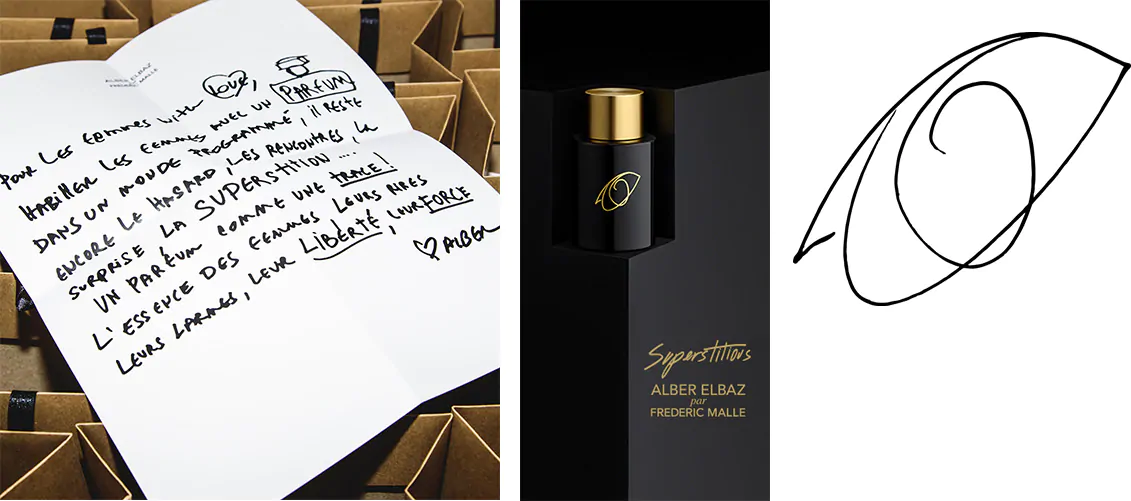 ALBER ELBAZ
FREDERIC MALLE
POUR LES FEMMES WITH Love,
HABILLER LES FEMMES AVEC UN PARFUM
DANS UN MONDE PROGRAMMÉ, il RESTE
ENCORE LE HASARD, LES RENCONTRES, LA
SURPRISE LA SUPERSTITION ....
UN PARFUM COMME UNE TRACE!
L'ESSENCE DES FEMMES LEURS RIRES
LEURS LARMES, LEUR LIBERTÉ, LEUR FORCE
ALBER
Superstitious
ALBER ELBAZ
par
FREDERIC MALLE